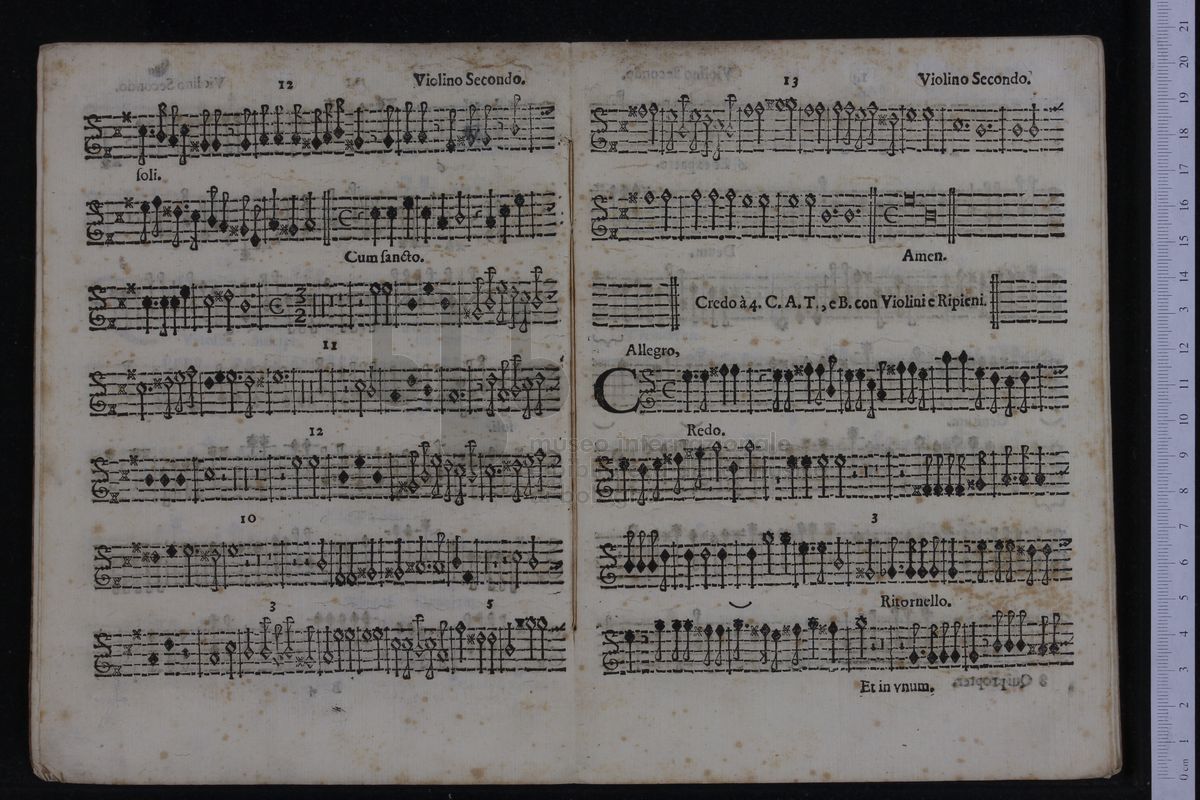 12 Violino Secondo.
ſoli.
Cum ſancto.
3
2
11
12
10
3 5
B 4
13 Violino Secondo.
Amen.
Credo à 4. C. A. T., e B. con Violini e Ripieni.
Allegro,
CRedo.
3
Ritornello.
Et in vnum.
museo internazionale
0 cm 1 2 3 4 5 6 7 8 9 10 11 12 13 14 15 16 17 18 19 20 21